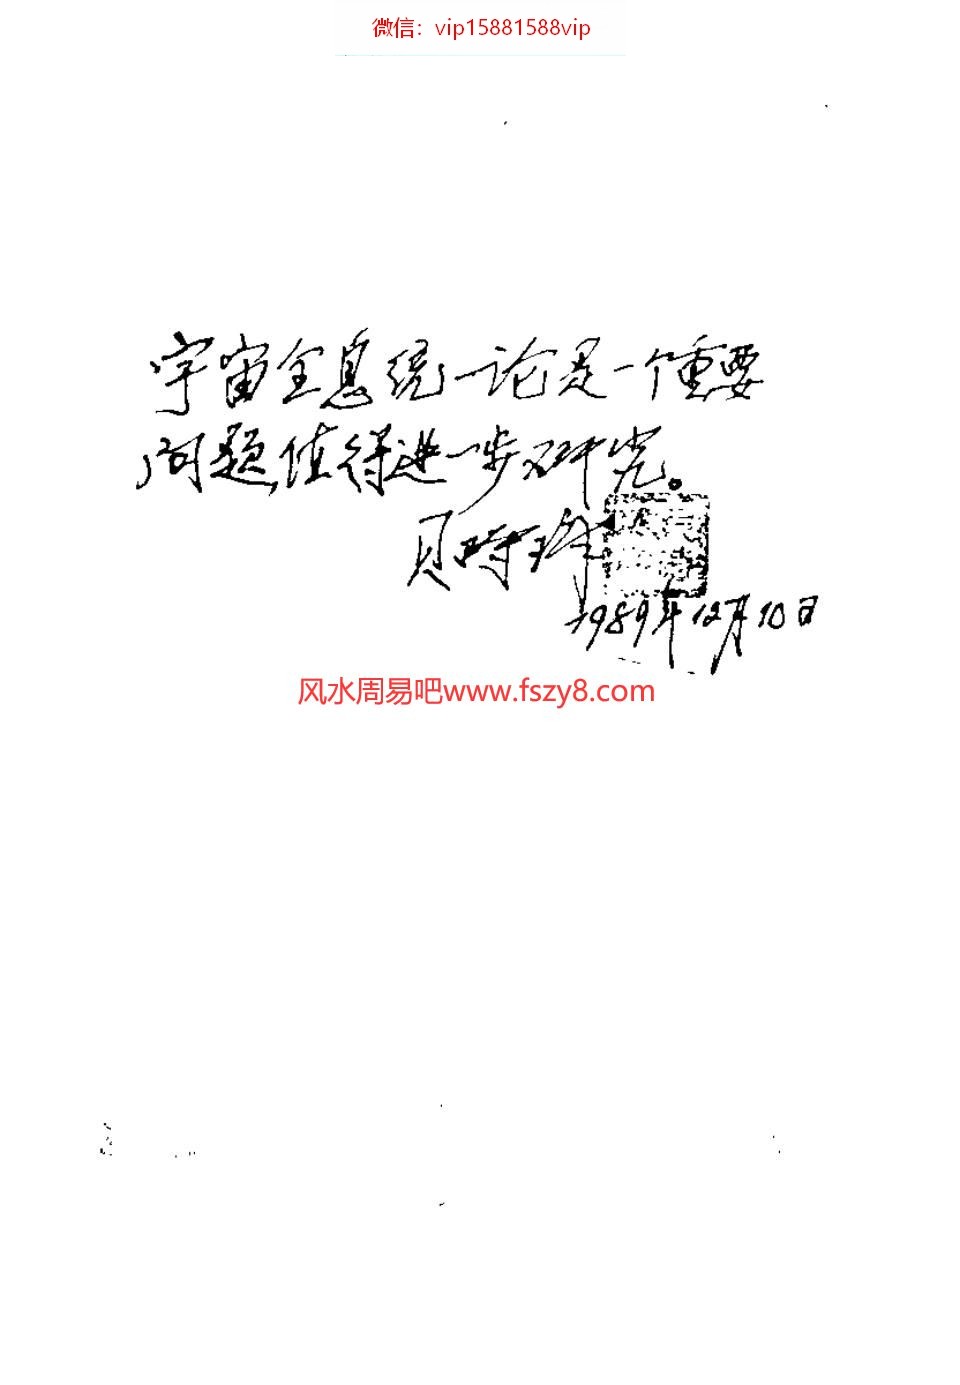 微信：vip15881588vip
宇宙全息统一论是一个重要
问题,值得进一步研究。
贝时璋
1989年12月10日
风水周易吧www.fszy8.com